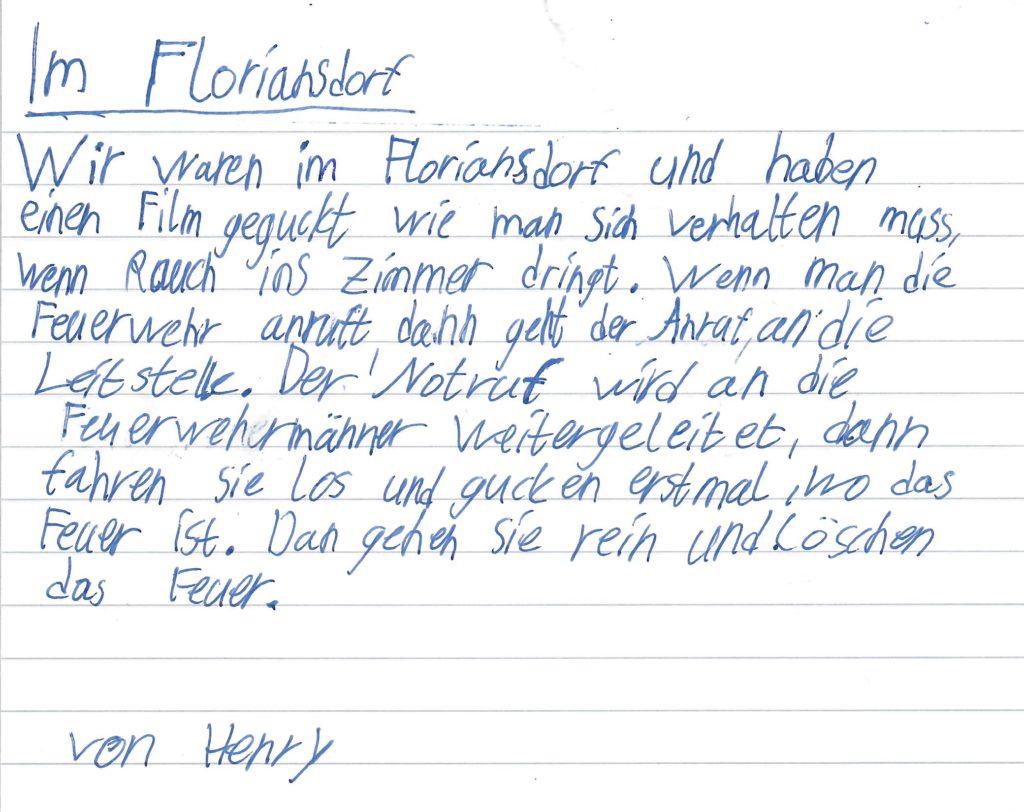 Im Floriansdorf
Wir waren im Floriansdorf und haben
einen Film geguckt wie man sich verhalten muss,
wenn Rauch ins Zimmer dringt. Wenn man die
Feuerwehr anruft, dann geht der Anruf, an die
Leitstelle. Der Notruf wird an die
Feuerwehermänner weitergeleitet, dann
fahren sie los und gucken erstmal, wo das
Feuer ist. Dan gehen sie rein und Löschen
das Feuer.
von Henry